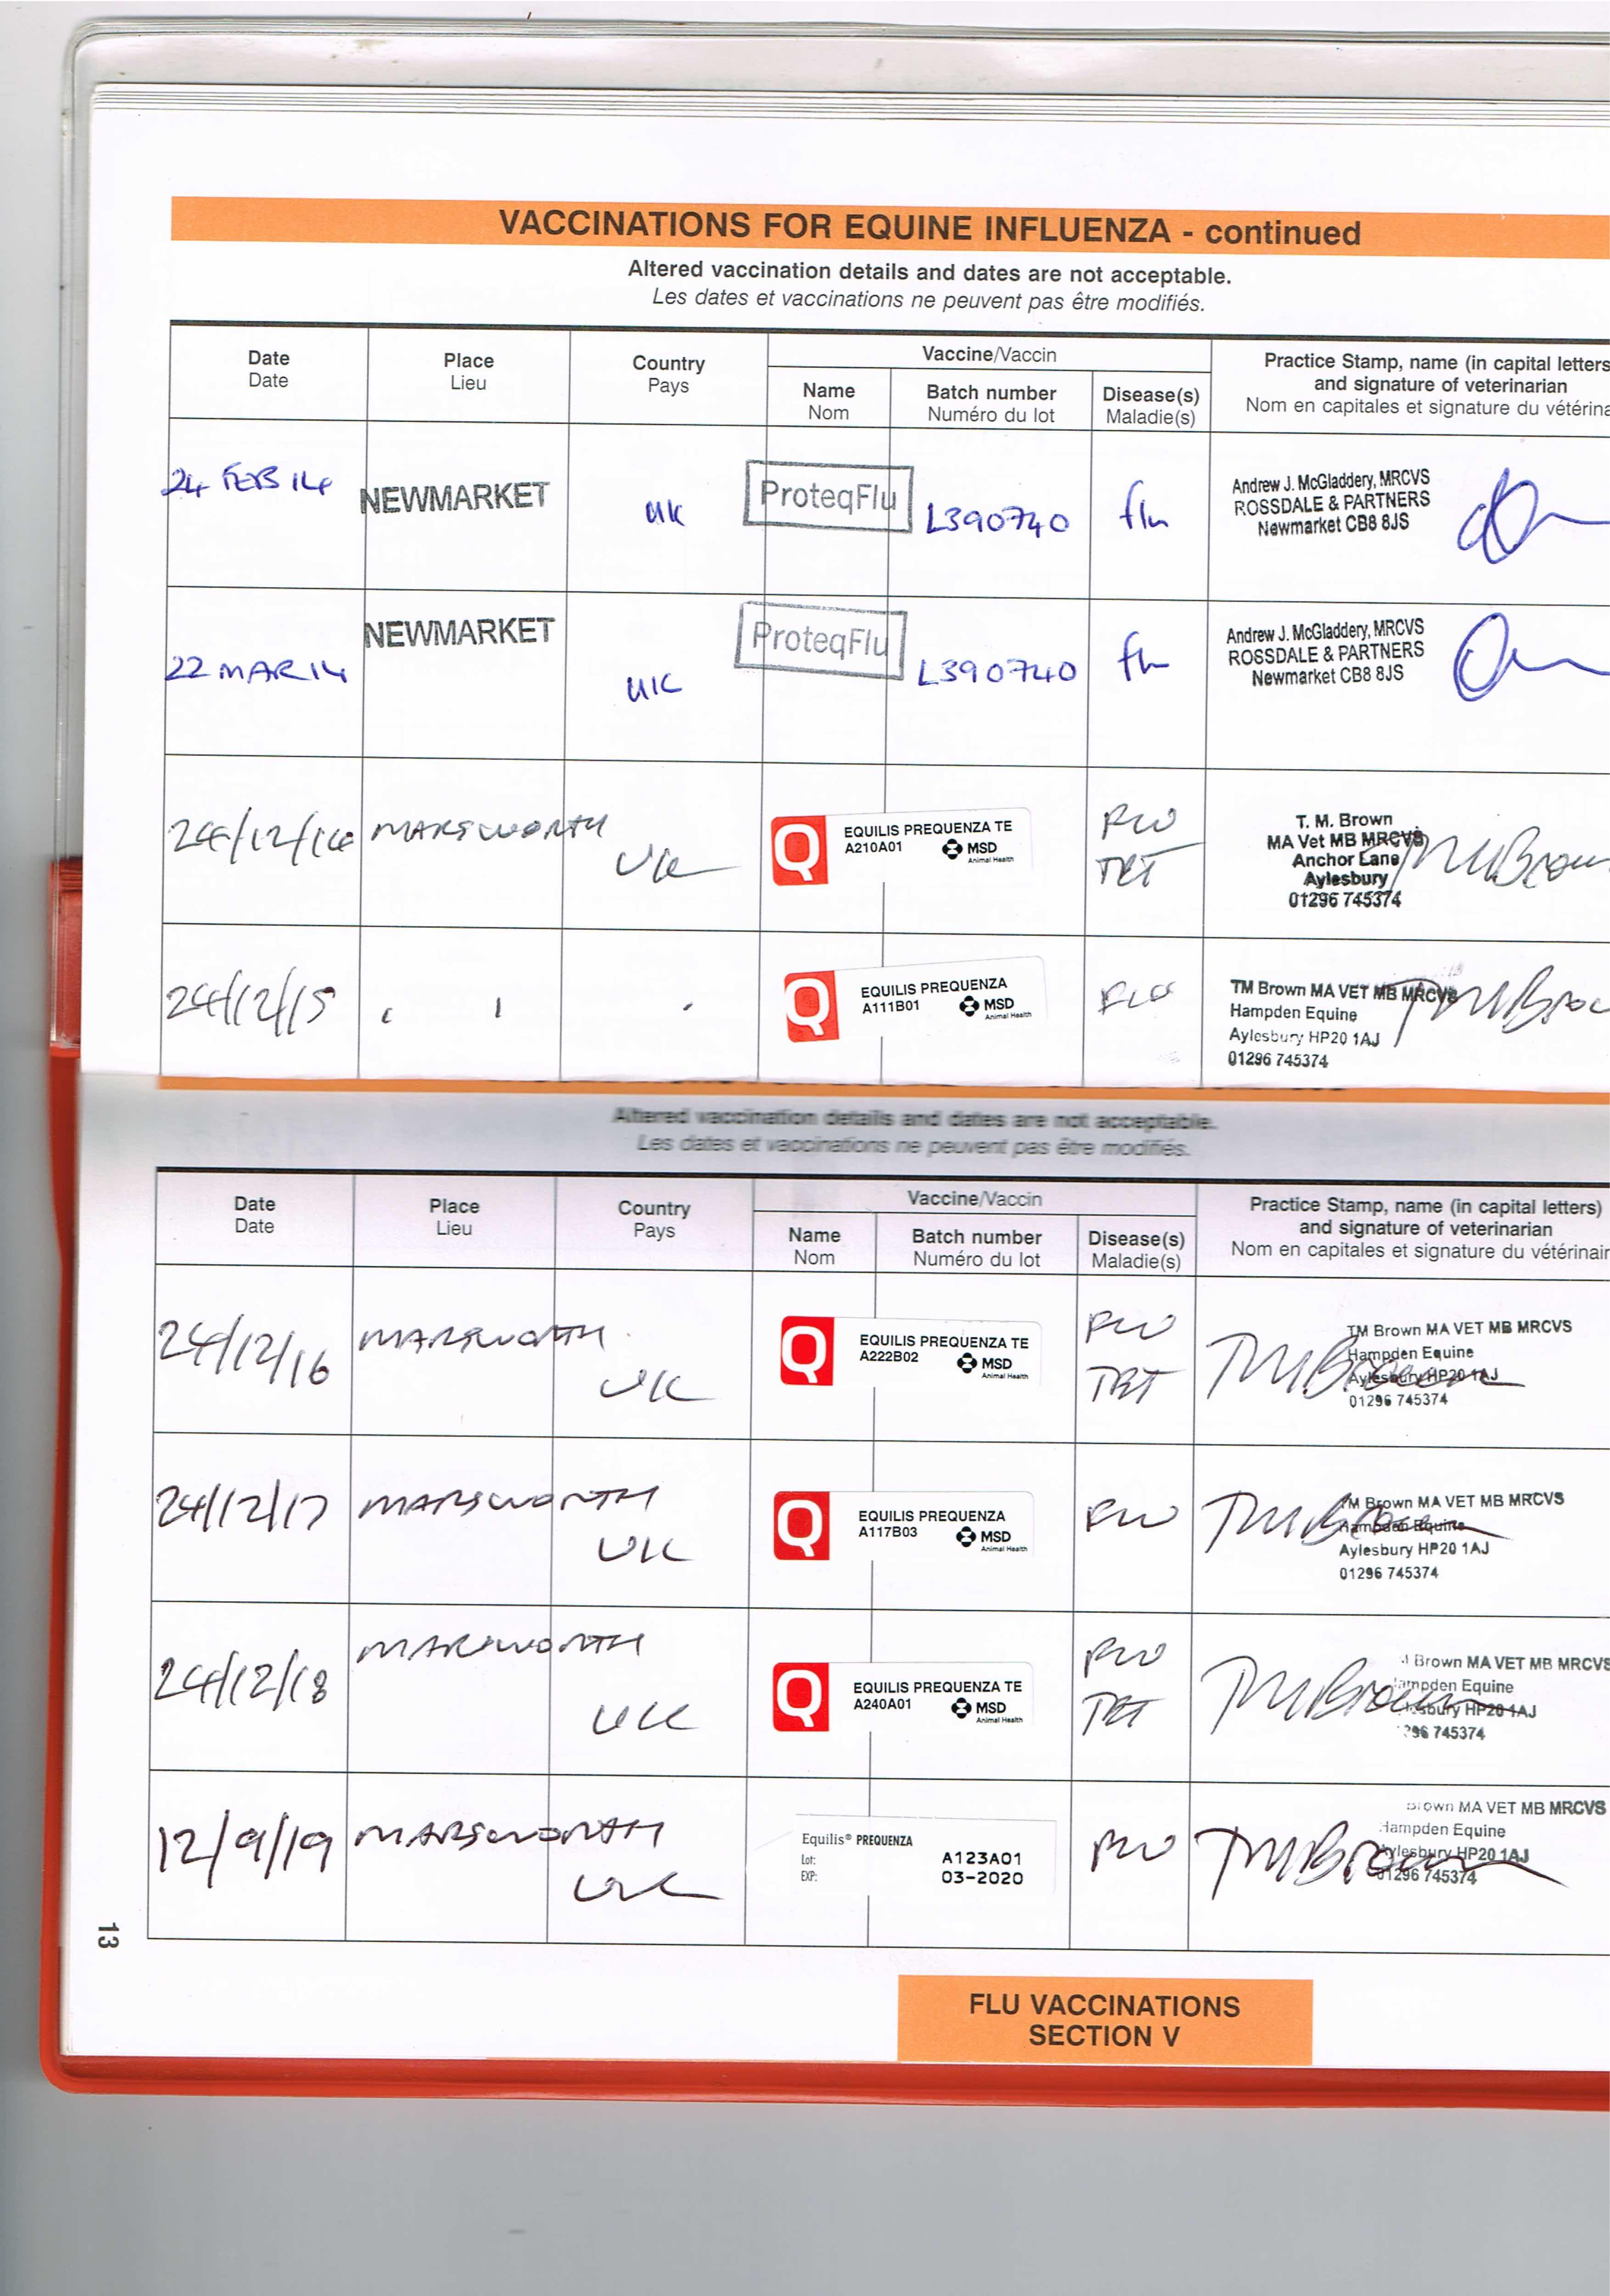 VACCINATIONS FOR EQUINE INFLUENZA - continued
Altered vaccination details and dates are not acceptable.
Les dates et vaccinations ne peuvent pas être modifiés.
Date Place Country Vaccine/Vaccin Practice Stamp, name (in capital letters
Date Lieu Pays Name Batch number Disease(s) and signature of veterinarian
Nom Numéro du lot Maladie(s) Nom en capitales et signature du vétérina
24 FEB 14 NEWMARKET UK ProteqFlu L390740 flu
Andrew J. McGladdery, MRCVS
ROSSDALE & PARTNERS
Newmarket CB8 8JS
22 MAR 14 NEWMARKET UK ProteqFlu L390740 flu
Andrew J. McGladdery, MRCVS
ROSSDALE & PARTNERS
Newmarket CB8 8JS
24/12/14 MARSWORTH UK
EQUILIS PREQUENZA TE
A210A01 MSD
Animal Health
FLU
TET
T. M. Brown
MA Vet MB MRCVS
Anchor Lane
Aylesbury
01296 745374
TMBrown
24/12/15
EQUILIS PREQUENZA
A111B01 MSD
Animal Health
FLU
TM Brown MA VET MB MRCVS
Hampden Equine
Aylesbury HP20 1AJ
01296 745374
Altered vaccination details and dates are not acceptable.
Les dates et vaccinations ne peuvent pas être modifiés.
Date Place Country Vaccine/Vaccin Practice Stamp, name (in capital letters)
Date Lieu Pays Name Batch number Disease(s) and signature of veterinarian
Nom Numéro du lot Maladie(s) Nom en capitales et signature du vétérinair
24/12/16 MARSWORTH UK
EQUILIS PREQUENZA TE
A222B02 MSD
Animal Health
FLU
TET
TM Brown MA VET MB MRCVS
Hampden Equine
Aylesbury HP20 1AJ
01296 745374
TMBrown
24/12/17 MARSWORTH UK
EQUILIS PREQUENZA
A117B03 MSD
Animal Health
FLU
TM Brown MA VET MB MRCVS
Hampden Equine
Aylesbury HP20 1AJ
01296 745374
TMBrown
24/12/18 MARSWORTH UK
EQUILIS PREQUENZA TE
A240A01 MSD
Animal Health
FLU
TET
Brown MA VET MB MRCVS
mpden Equine
sbury HP20 1AJ
296 745374
TMBrown
12/9/19 MARSWORTH UK
Equilis® PREQUENZA
Lot: A123A01
EXP: 03-2020
FLU
Brown MA VET MB MRCVS
Hampden Equine
ylesbury HP20 1AJ
01296 745374
TMBrown
13
FLU VACCINATIONS
SECTION V